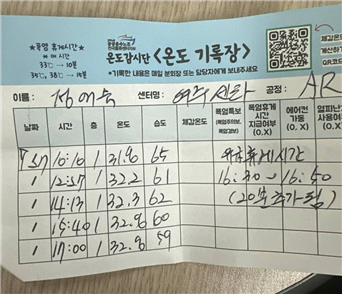 * 폭염 휴게시간
* 매 시간
33℃ → 10분
35℃, 38℃ → 15분
온도감시단 <온도 기록장>
*기록한 내용은 매일 분회장 또는 담당자에게 보내주세요
체감온
계산하
QR코드
이름 : 정애숙 센터명 : 여주센타 공정 : AR
날짜 시간 층 온도 습도 체감온도 폭염특보 (폭염주의보, 폭염경보) 폭염휴게시간 지급여부 (O, X) 에어컨 가동 (O, X) 열피난 사용여 (O, X
7/57 10:10 1 31.8 65 유급휴게시간
1 12:57 1 32.2 61 16:30 → 16:50
1 14:13 1 32.3 62 (20분 추가됨)
1 15:40 1 32.8 60
1 17:00 1 32.8 59